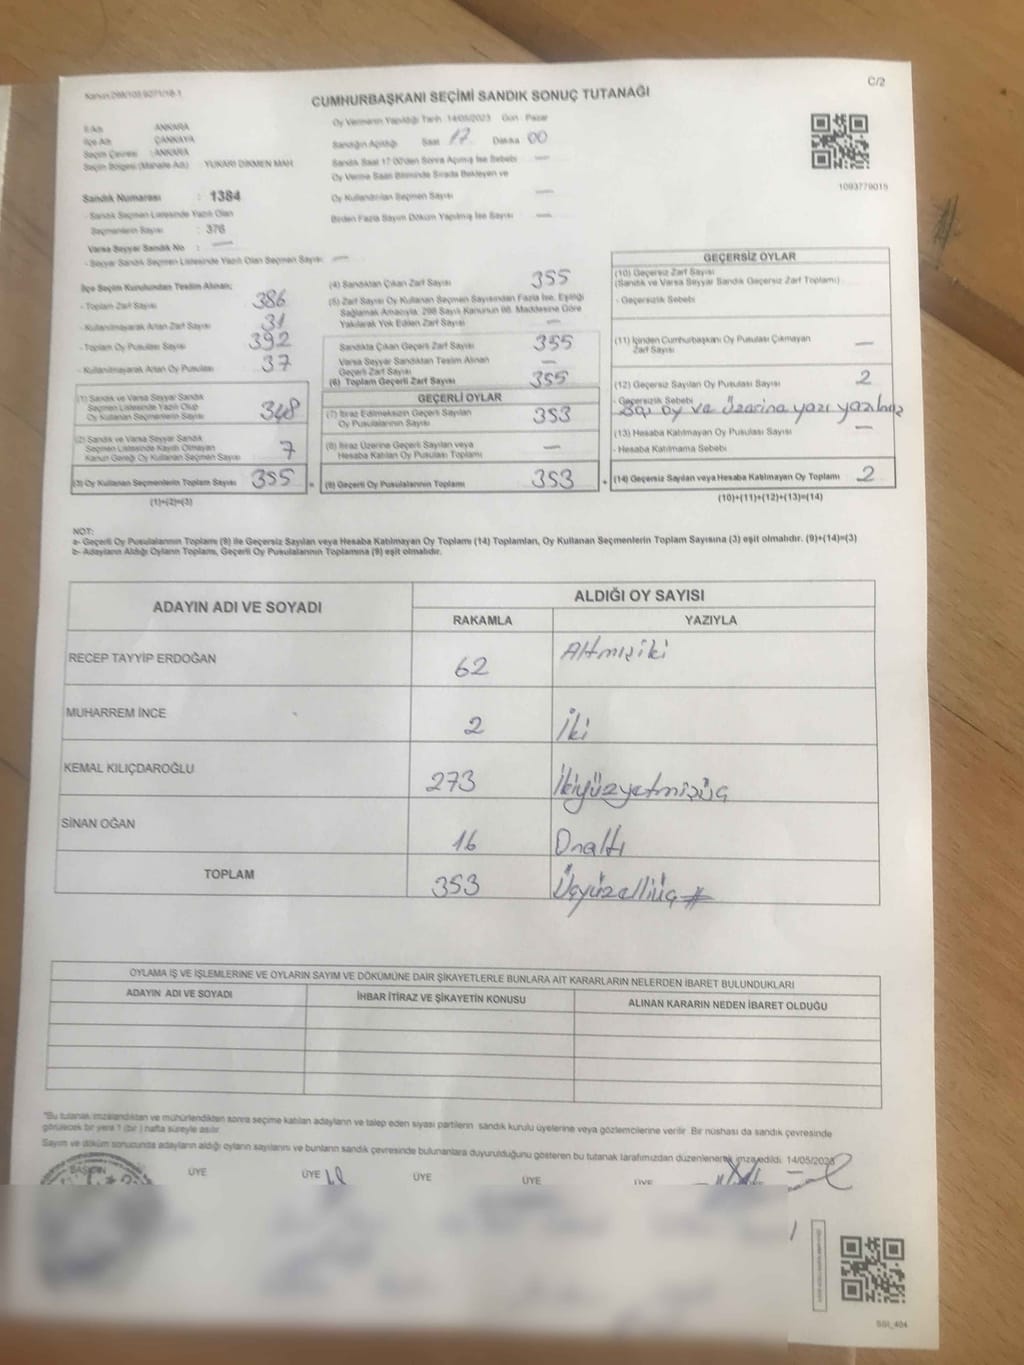 Kanun:298/105 9271/18-1
C/2
CUMHURBAŞKANI SEÇİMİ SANDIK SONUÇ TUTANAĞI
İl Adı : ANKARA
İlçe Adı : ÇANKAYA
Seçim Çevresi : ANKARA
Seçim Bölgesi (Mahalle Adı) : YUKARI DİKMEN MAH.
Sandık Numarası : 1384
- Sandık Seçmen Listesinde Yazılı Olan
Seçmenlerin Sayısı : 376
Varsa Seyyar Sandık No : —
- Seyyar Sandık Seçmen Listesinde Yazılı Olan Seçmen Sayısı: —
Oy Vermenin Yapıldığı Tarih :14/05/2023 Gün : Pazar
Sandığın Açıldığı Saat 17 Dakika 00
Sandık Saat 17:00'den Sonra Açılmış İse Sebebi —
Oy Verme Saati Bitiminde Sırada Bekleyen ve
Oy Kullandırılan Seçmen Sayısı —
Birden Fazla Sayım Döküm Yapılmış İse Sayısı —
1093779015
İlçe Seçim Kurulundan Teslim Alınan;
- Toplam Zarf Sayısı 386
- Kullanılmayarak Artan Zarf Sayısı 31
- Toplam Oy Pusulası Sayısı 392
- Kullanılmayarak Artan Oy Pusulası 37
(1) Sandık ve Varsa Seyyar Sandık
Seçmen Listesinde Yazılı Olup
Oy Kullanan Seçmenlerin Sayısı 348
(2) Sandık ve Varsa Seyyar Sandık
Seçmen Listesinde Kayıtlı Olmayan
Kanun Gereği Oy Kullanan Seçmen Sayısı 7
(3) Oy Kullanan Seçmenlerin Toplam Sayısı 355 =
(1)+(2)=(3)
(4) Sandıktan Çıkan Zarf Sayısı 355
(5) Zarf Sayısı Oy Kullanan Seçmen Sayısından Fazla İse, Eşitliği
Sağlamak Amacıyla, 298 Sayılı Kanunun 98. Maddesine Göre
Yakılarak Yok Edilen Zarf Sayısı —
Sandıkta Çıkan Geçerli Zarf Sayısı 355
Varsa Seyyar Sandıktan Teslim Alınan
Geçerli Zarf Sayısı —
(6) Toplam Geçerli Zarf Sayısı 355
GEÇERLİ OYLAR
(7) İtiraz Edilmeksizin Geçerli Sayılan
Oy Pusulasının Sayısı 353
(8) İtiraz Üzerine Geçerli Sayılan veya
Hesaba Katılan Oy Pusulası Toplamı —
(9) Geçerli Oy Pusulalarının Toplamı 353 +
GEÇERSİZ OYLAR
(10) Geçersiz Zarf Sayısı
(Sandık ve Varsa Seyyar Sandık Geçersiz Zarf Toplamı)
- Geçersizlik Sebebi
(11) İçinden Cumhurbaşkanı Oy Pusulası Çıkmayan
Zarf Sayısı —
(12) Geçersiz Sayılan Oy Pusulası Sayısı 2
- Geçersizlik Sebebi
oy ve üzerine yazı
(13) Hesaba Katılmayan Oy Pusulası Sayısı —
- Hesaba Katılmama Sebebi
(14) Geçersiz Sayılan veya Hesaba Katılmayan Oy Toplamı 2
(10)+(11)+(12)+(13)=(14)
NOT:
a- Geçerli Oy Pusulasının Toplamı (9) ile Geçersiz Sayılan veya Hesaba Katılmayan Oy Toplamı (14) Toplamları, Oy Kullanan Seçmenlerin Toplam Sayısına (3) eşit olmalıdır. (9)+(14)=(3)
b- Adayların Aldığı Oyların Toplamı, Geçerli Oy Pusulalarının Toplamına (9) eşit olmalıdır.
ADAYIN ADI VE SOYADI
ALDIĞI OY SAYISI
RAKAMLA YAZIYLA
RECEP TAYYİP ERDOĞAN 62 Altmışiki
MUHARREM İNCE 2 İki
KEMAL KILIÇDAROĞLU 273 İkiyüzyetmişüç
SİNAN OĞAN 16 Onaltı
TOPLAM 353 Üçyüzelliüç #
OYLAMA İŞ VE İŞLEMLERİNE VE OYLARIN SAYIM VE DÖKÜMÜNE DAİR ŞİKAYETLERLE BUNLARA AİT KARARLARIN NELERDEN İBARET BULUNDUKLARI
ADAYIN ADI VE SOYADI İHBAR İTİRAZ VE ŞİKAYETİN KONUSU ALINAN KARARIN NEDEN İBARET OLDUĞU
*Bu tutanak imzalandıktan ve mühürlendikten sonra seçime katılan adayların ve talep eden siyasi partilerin sandık kurulu üyelerine veya gözlemcilerine verilir. Bir nüshası da sandık çevresinde
görülecek bir yere 1 (bir ) hafta süreyle asılır.
Sayım ve döküm sonucunda adayların aldığı oyların sayılarını ve bunların sandık çevresinde bulunanlara duyurulduğunu gösteren bu tutanak tarafımızdan düzenlenerek imza edildi. 14/05/2023
BAŞKAN ÜYE ÜYE ÜYE ÜYE ÜYE
SSI_404